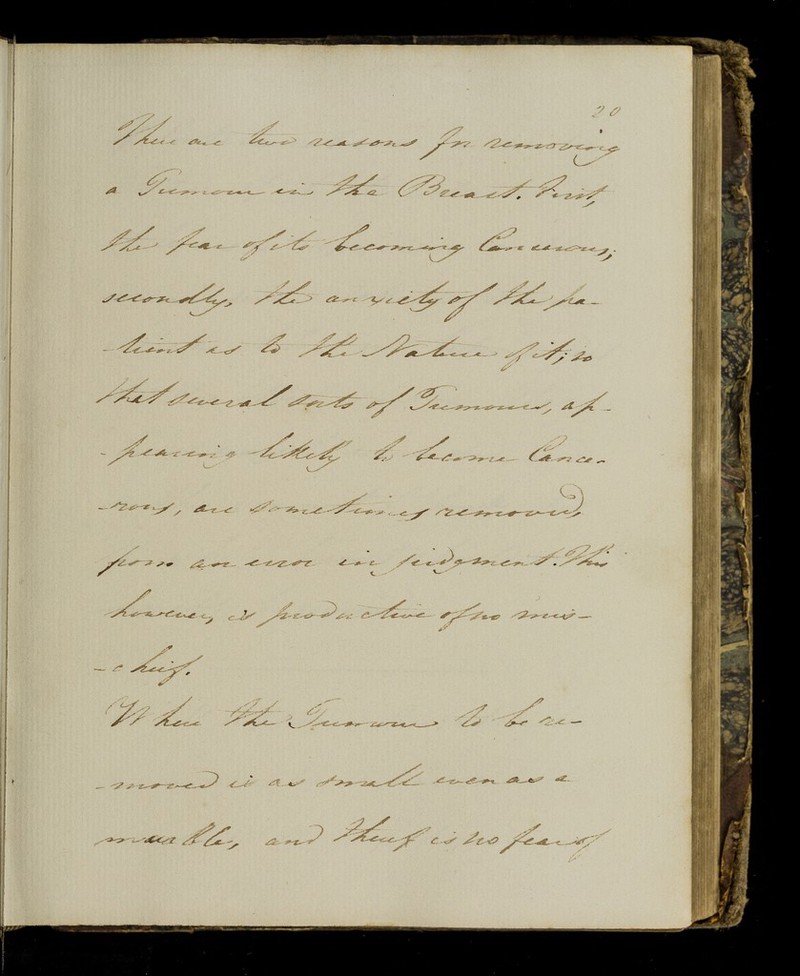 20
There are two reasons for removing
a Tumour in the Breast. First,
the fear of its becoming Cancerous;
secondly, the anxiety of the pa-
-tient as to the Nature of it; so
that several sorts of Tumours, ap-
-pearing likely to become Cance-
-rous, are sometimes removed,
from an error in judgment. This
however, is productive of no mis-
-cheif.
Where the Tumour to be re-
-moved is as small even as a
marble, and there is no fear of